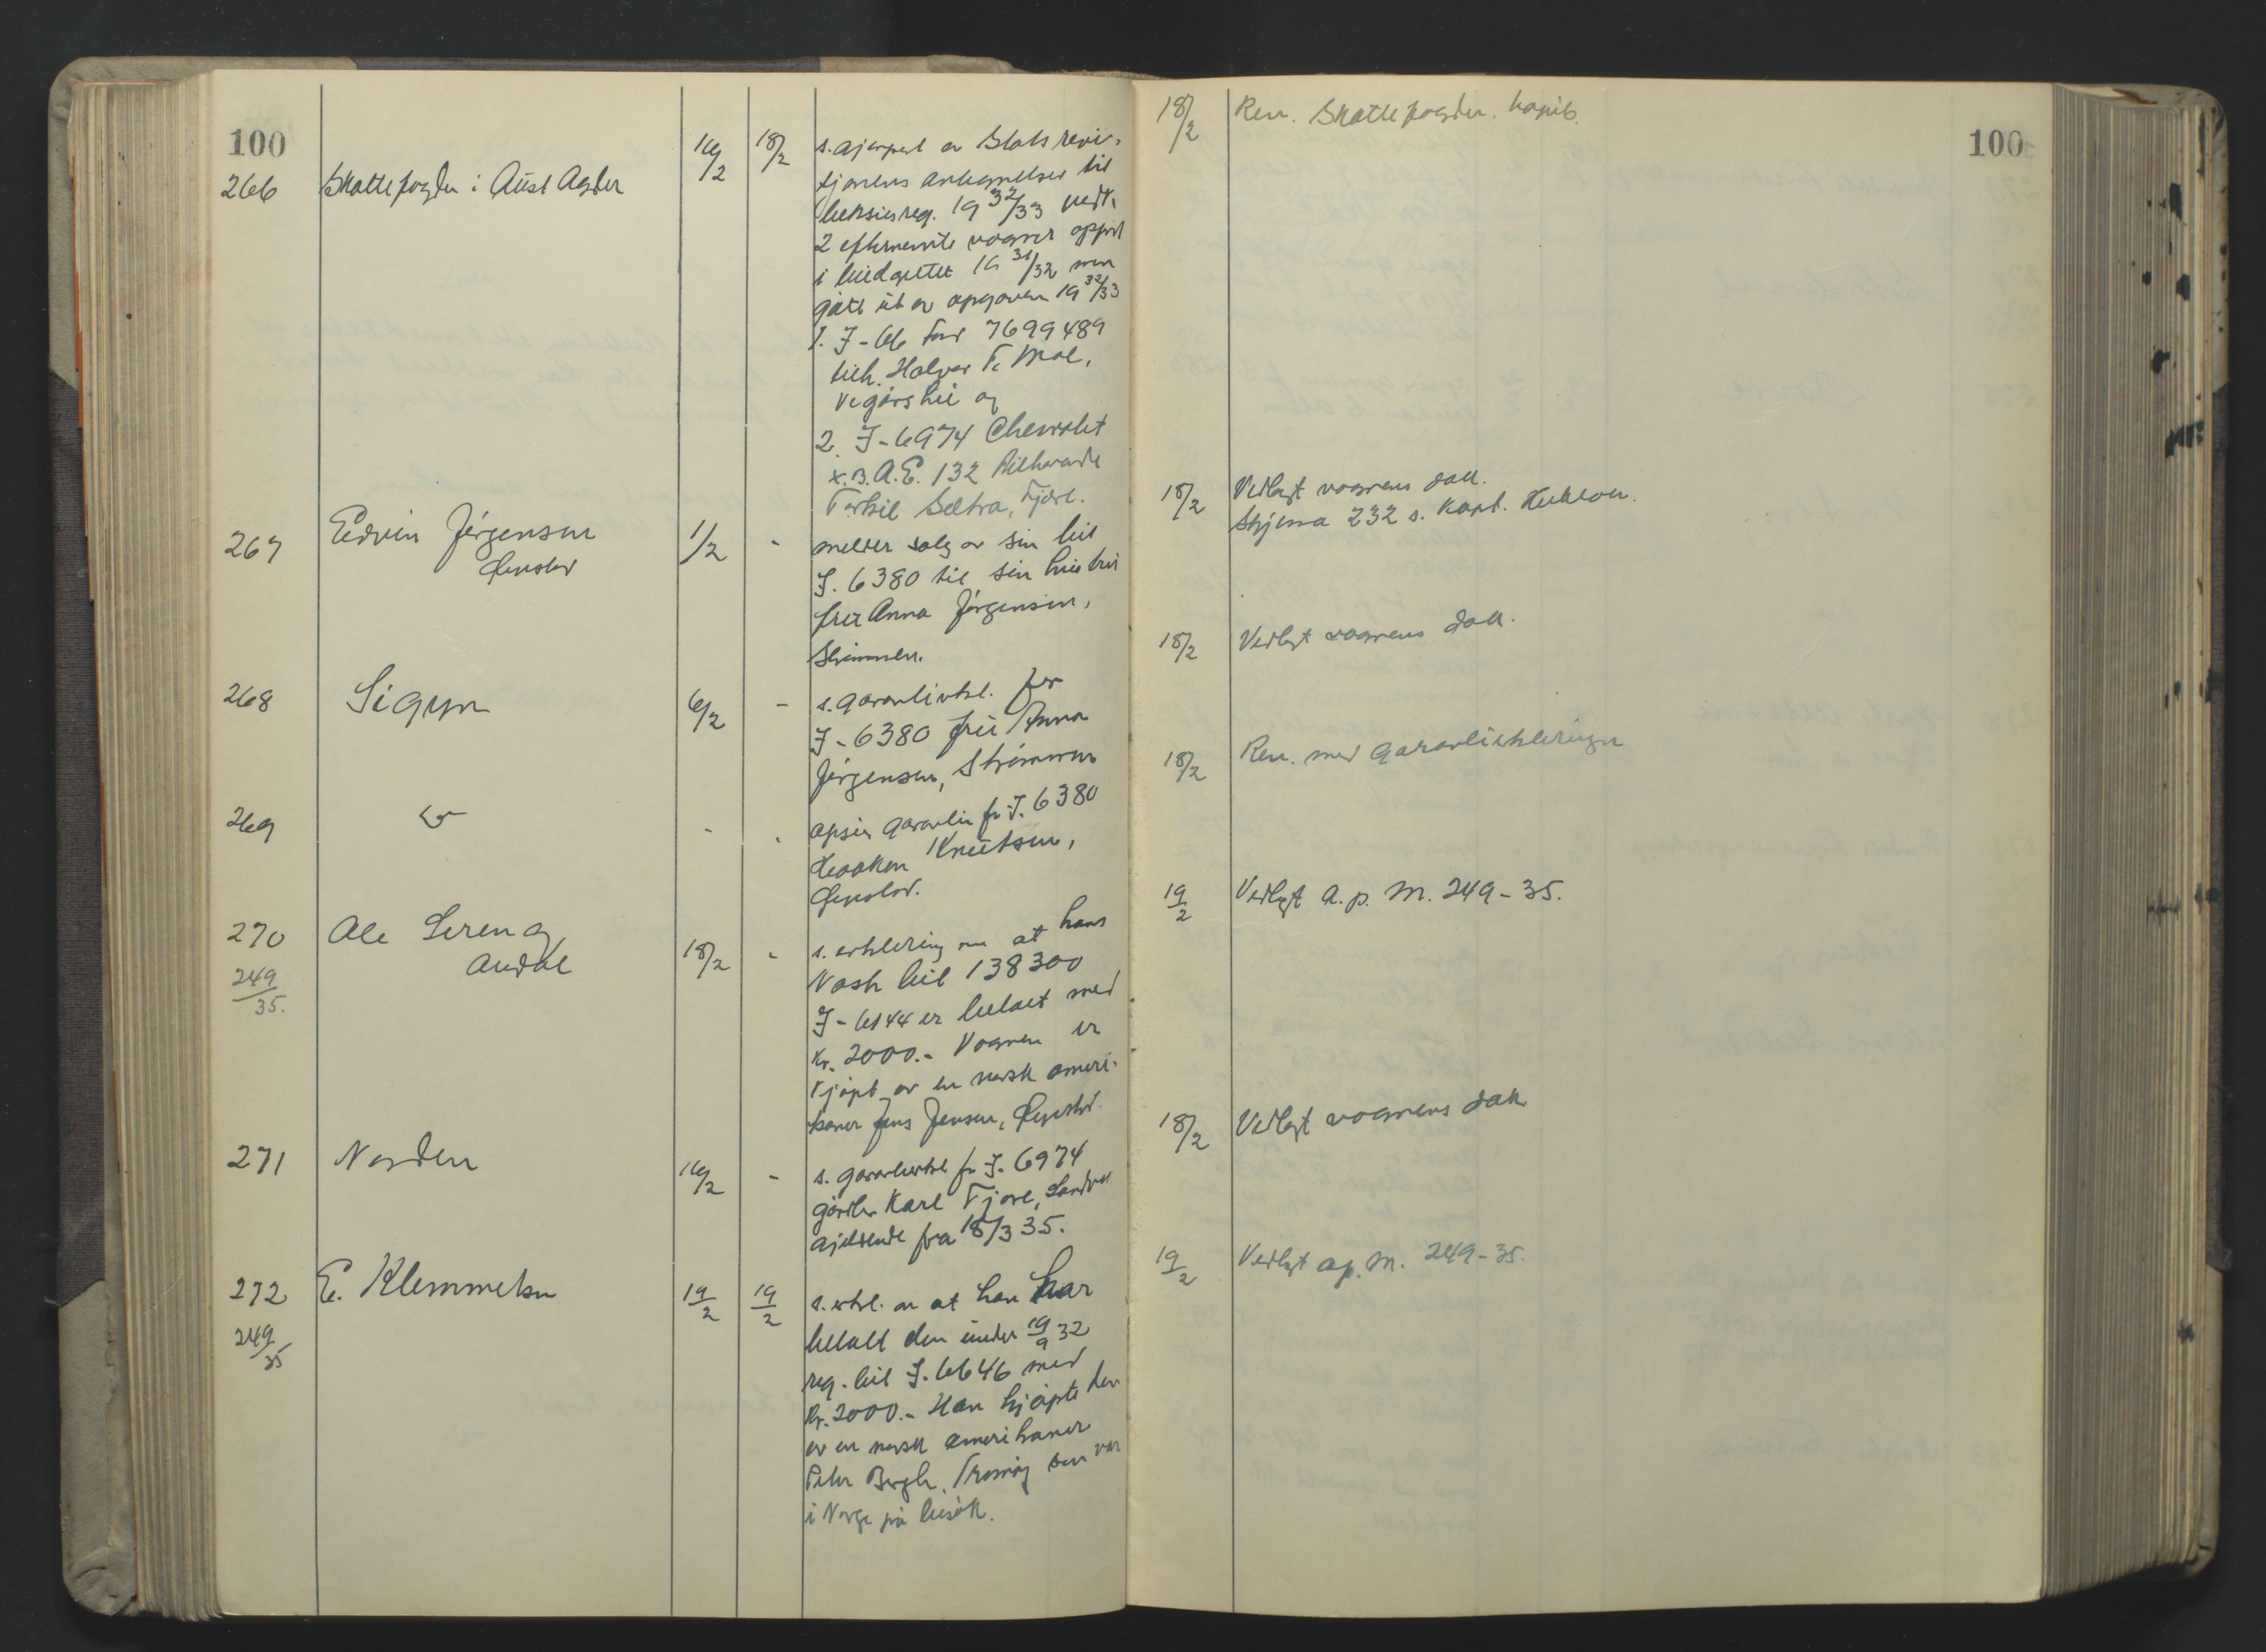 100
266 Skattefogden i Aust Agder 16/2 18/2 s. gjenpart av Statsrevi-
sjonens antegnelser til
luksusreg. 19 32/33 vedr.
2 efternevnte vogner opført
i budgettet 19 31/32 men
gått ut av opgaven 19 32/33
1. I-66 Ford 7699489
tilh. Halvor T. Moe,
Vegårshei og
2. I-6974 Chevrolet
x.B.A.E. 132 tilhørende
Torkil Sætra, Fjære.
267 Edvin Jørgensen 1/2 - melder salg av sin bil
Grimstad
I. 6380 til sin hustru
fru Anna Jørgensen,
Strømmen.
268 Sigyn 6/2 - s. garantierkl. for
I-6380 fru Anna
Jørgensen, Strømmen
269 do - - opsier garantien for I. 6380
Haakon Knutsen,
Grimstad.
270 Ole Sereng 18/2 - s. erklering om at hans
Nash bil 138300
249/35.
I-6144 er betalt med
Kr. 2000.- Vognen er
kjøpt av en norsk ameri-
kaner Jens Jensen,
271 Norden 16/2 - s. garantierkl. for I. 6974
Karl Fjære,
gjeldende fra 18/3 35.
272 E. Klemmetsen 19/2 19/2 s. erkl. om at han har
249/35
betalt den under 19/9 32
reg. bil I. 6646 med
Kr. 2000.- Han kjøpte den
av en norsk amerikaner
Peter Bergh, Tromøy som var
i Norge på besøk.
18/2 Ren. Skattefogden. kopib.
100
18/2 Vedlagt vognens dok.
Skjema 232 s.
18/2 Vedlagt vognens dok.
18/2 Ren. med garantierkleringen
19/2 Vedlagt a. p. M. 249-35.
18/2 Vedlagt vognens dok.
19/2 Vedlagt ap. M. 249-35.